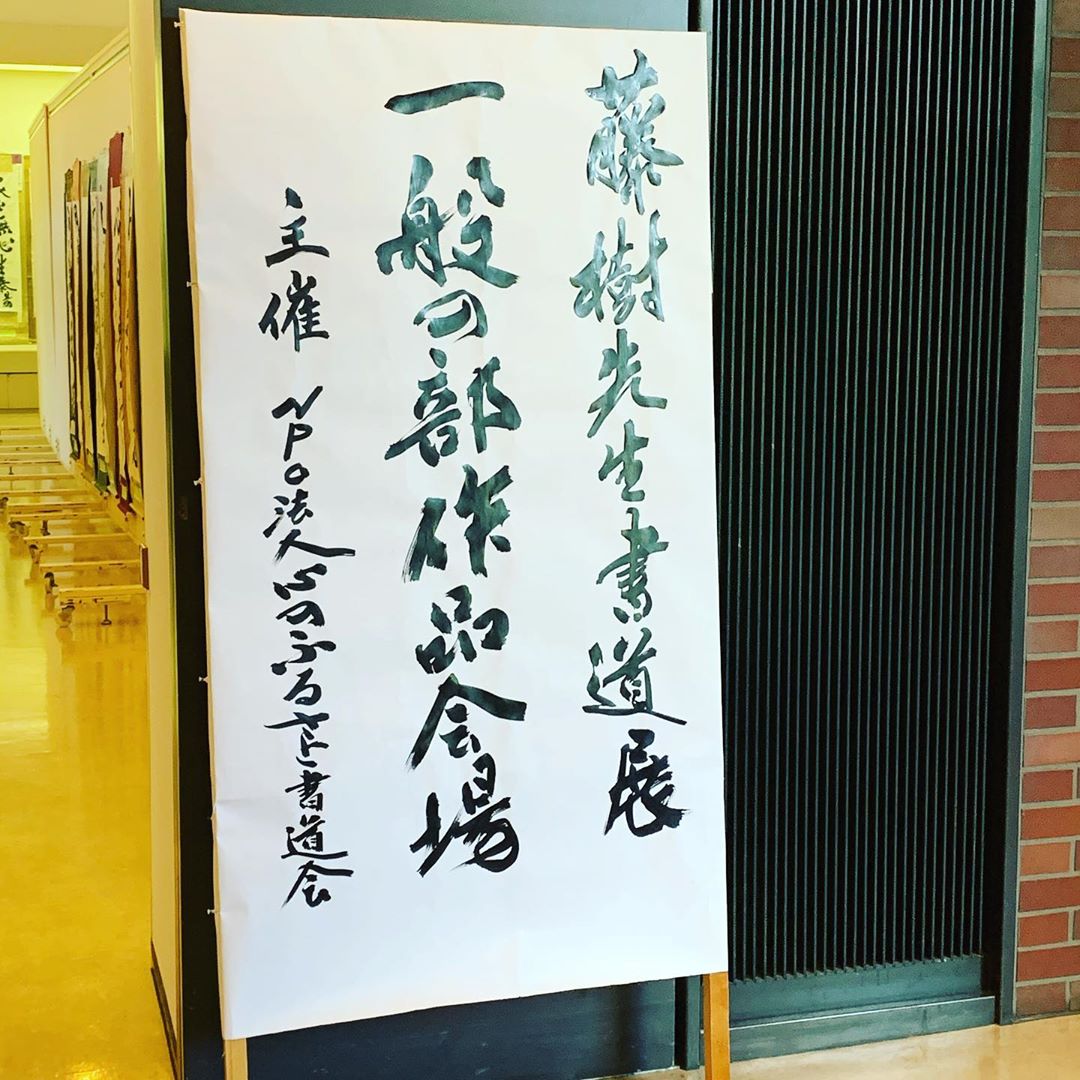 藤樹先生書道展
一般の部作品会場
主催 NPO法人心のふるさと書道会